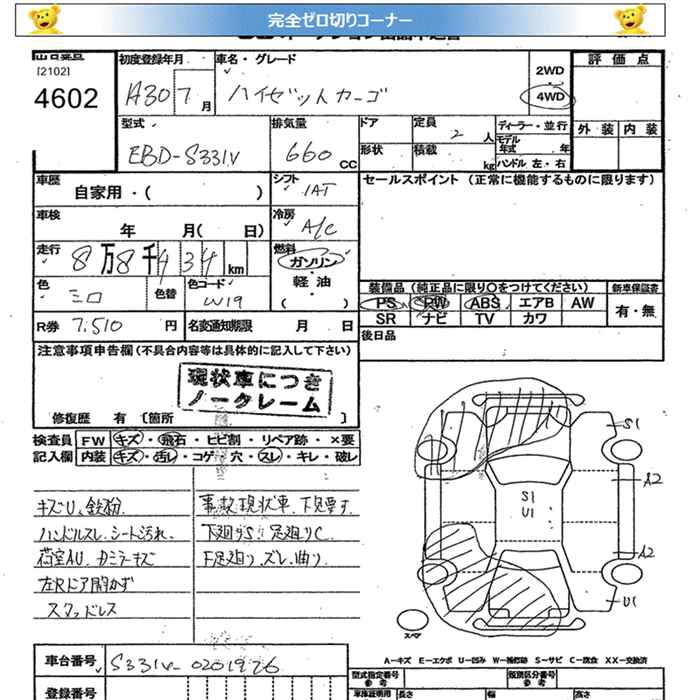 完全ゼロ切りコーナー
[2102]
4602
初度登録年月
H30 7 月
車名・グレード
ハイゼットカーゴ
2WD
4WD
評価点
外装 内装
型式
EBD-S331V
排気量
660 CC
ドア
形状
定員 2 人
積載 kg
ディーラー・並行
モデル年式 年
ハンドル 左・右
車歴
自家用・( )
シフト
IAT
セールスポイント (正常に機能するものに限ります)
車検
年 月( 日)
冷房
A/C
走行
8万8千434 km
燃料
ガソリン
軽油
( )
色
シロ
色替
色コード
W19
装備品 (純正品に限り○をつけてください)
新車保証書
PS PW ABS エアB AW
SR ナビ TV カワ
有・無
R券 7,510 円
名変通知期限 月 日
後日品
注意事項申告欄(不具合内容等は具体的に記入して下さい)
現状車につき
ノークレーム
修復歴 有 〔箇所 〕
検査員 FW キズ・飛石・ヒビ割・リペア跡・×要
記入欄 内装 キズ・汚レ・コゲ・穴・スレ・キレ・破レ
キズU、鉄粉
ハンドルスレ、シート汚れ、
荷室AU、カミラーキズ
左Rドア開かず
スタッドレス
事故現状車、下見要す、
下廻りS 足廻りC
F足廻り、ズレ、曲り
S1
A2
S1
U1
A2
U1
スペア
A-キズ E-エクボ U-凹み W-補修跡 S-サビ C-腐食 XX-交換済
車台番号 S331V-0201926
登録番号
型式指定番号
参考
類別区分番号
参考
車検証明用
長さ
幅
高さ